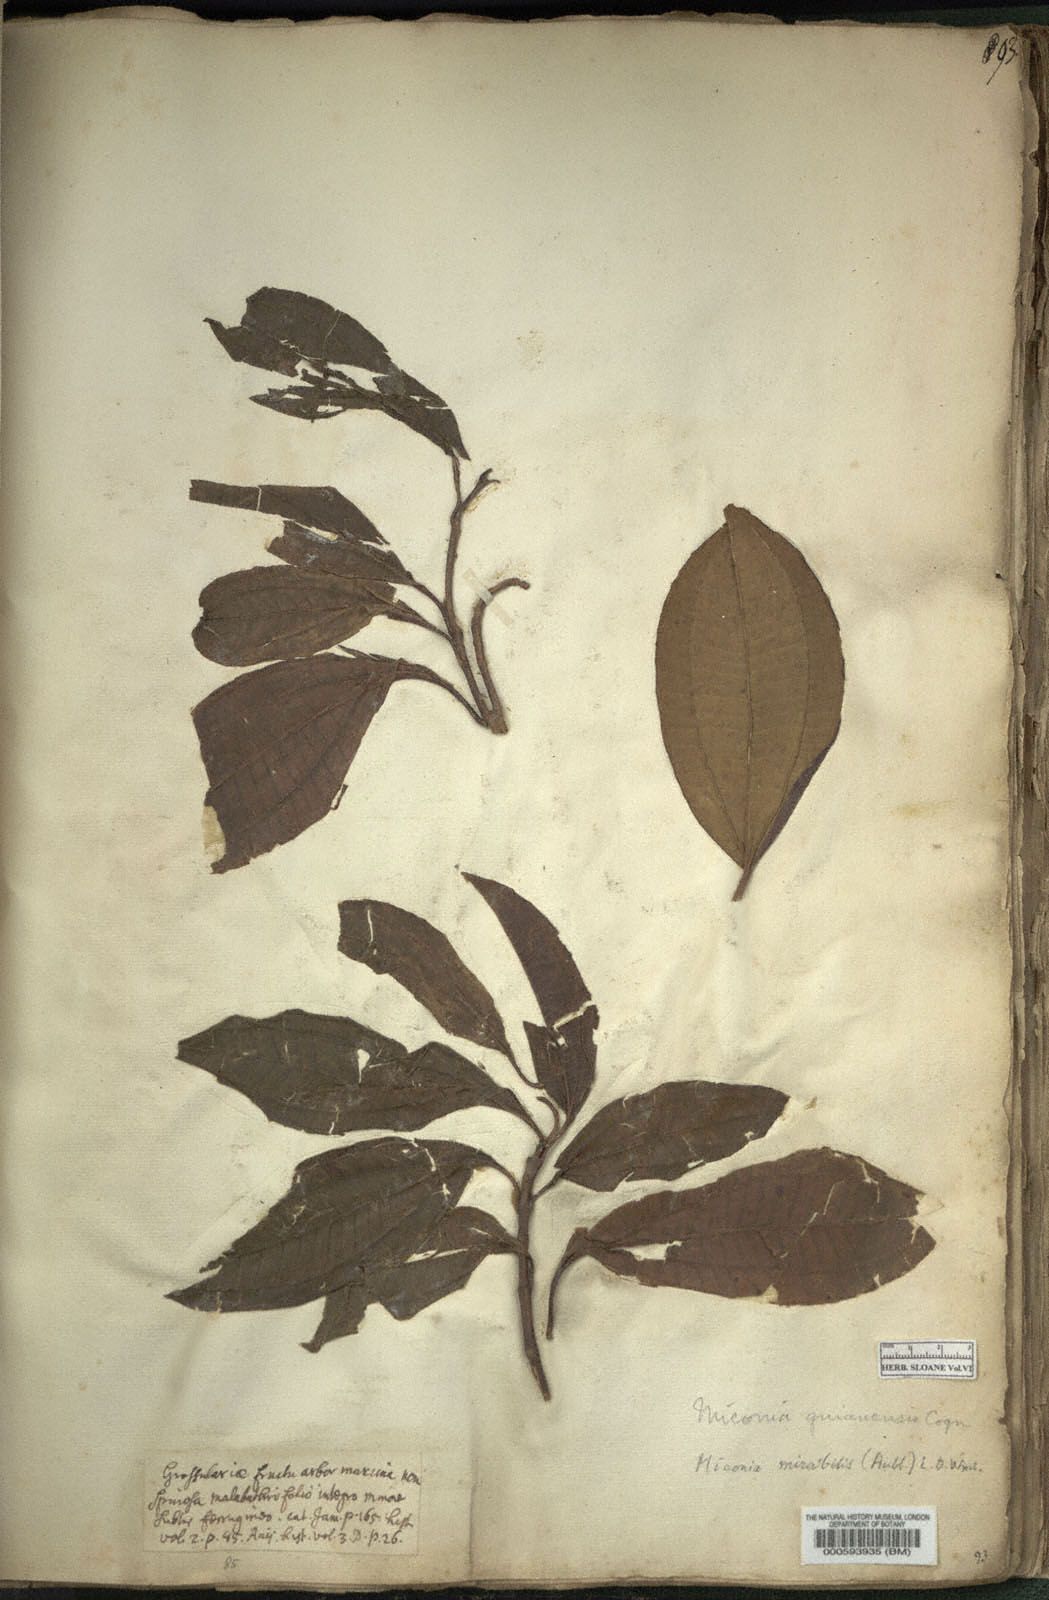 93
HERB. SLOANE Vol.VI
Miconia guianensis Cogn
Miconia mirabilis (Aubl.) L. O. Wms.
Grossulariæ fructu arbor maxima non
spinosa malabathri folio integro minore
subtus ferrugineo. cat. Jam. p. 165. hist.
vol. 2. p. 85. Raij. hist. vol. 3. D. p. 26.
85
THE NATURAL HISTORY MUSEUM, LONDON
DEPARTMENT OF BOTANY
000593935 (BM)
93